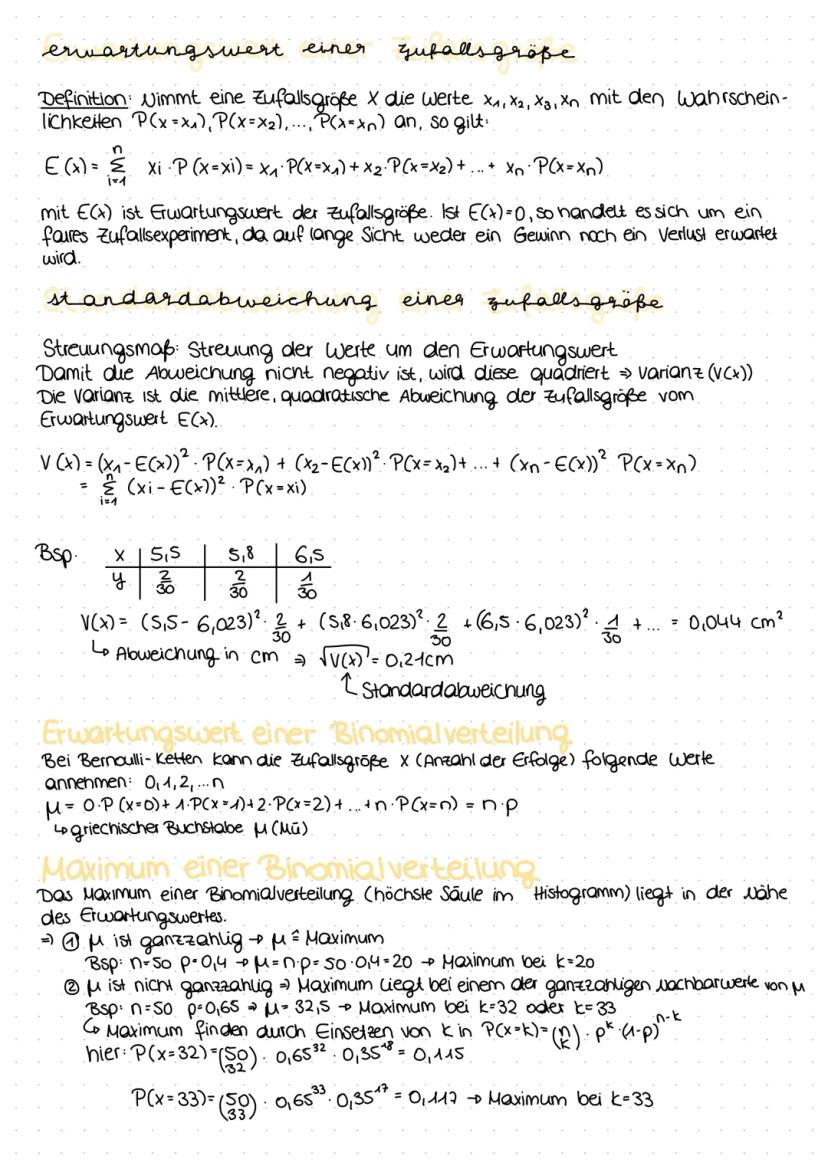 erwartungswert einer zufallsgröße
Definition: Nimmt eine Zufallsgröße X die Werte x₁, x₂, x₃, xₙ mit den Wahrschein-
lichkeiten P(x=x₁), P(x=x₂), ..., P(x=xₙ) an, so gilt:
E(x) = Σⁿᵢ₌₁ xi · P(x=xi) = x₁·P(x=x₁) + x₂·P(x=x₂) + ... + xₙ·P(x=xₙ)
mit E(x) ist Erwartungswert der Zufallsgröße. Ist E(x)=0, so handelt es sich um ein
faires Zufallsexperiment, da auf lange Sicht weder ein Gewinn noch ein Verlust erwartet
wird.
standardabweichung einer zufallsgröße
Streuungsmaß: Streuung der Werte um den Erwartungswert
Damit die Abweichung nicht negativ ist, wird diese quadriert ⇒ Varianz (V(x))
Die Varianz ist die mittlere, quadratische Abweichung der Zufallsgröße vom
Erwartungswert E(x).
V(x) = (x₁-E(x))² · P(x=x₁) + (x₂-E(x))² · P(x=x₂) + ... + (xₙ-E(x))² P(x=xₙ)
= Σⁿᵢ₌₁ (xi-E(x))² · P(x=xi)
Bsp. x | 5,5 | 5,8 | 6,5
y | 2/30 | 2/30 | 1/30
V(x) = (5,5-6,023)² · 2/30 + (5,8·6,023)² · 2/30 + (6,5·6,023)² · 1/30 + ... = 0,044 cm²
↳ Abweichung in cm ⇒ √V(x) = 0,21cm
↑ Standardabweichung
Erwartungswert einer Binomialverteilung
Bei Bernoulli-Ketten kann die Zufallsgröße X (Anzahl der Erfolge) folgende Werte
annehmen: 0,1,2,...n
μ = 0·P(x=0) + 1·P(x=1) + 2·P(x=2) + ... + n·P(x=n) = n·p
↳ griechischer Buchstabe μ (Mü)
Maximum einer Binomialverteilung
Das Maximum einer Binomialverteilung (höchste Säule im Histogramm) liegt in der Nähe
des Erwartungswertes.
⇒ ① μ ist ganzzahlig → μ ≙ Maximum
Bsp: n=50 p=0,4 → μ=n·p= 50·0,4=20 → Maximum bei k=20
② μ ist nicht ganzzahlig ⇒ Maximum liegt bei einem der ganzzahligen Nachbarwerte von μ
Bsp: n=50 p=0,65 → μ=32,5 → Maximum bei k=32 oder k=33
↳ Maximum finden durch Einsetzen von k in P(x=k) = (n k) · pᵏ · (1-p)ⁿ⁻ᵏ
hier: P(x=32) = (50 32) · 0,65³² · 0,35¹⁸ = 0,115
P(x=33) = (50 33) · 0,65³³ · 0,35¹⁷ = 0,117 → Maximum bei k=33